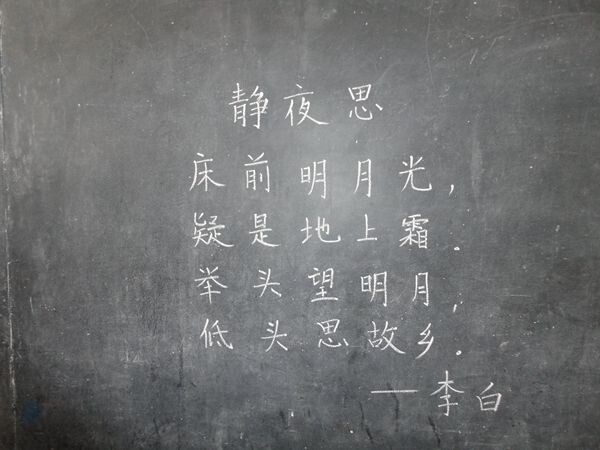 静夜思
床前明月光，
疑是地上霜．
举头望明月，
低头思故乡。
——李白